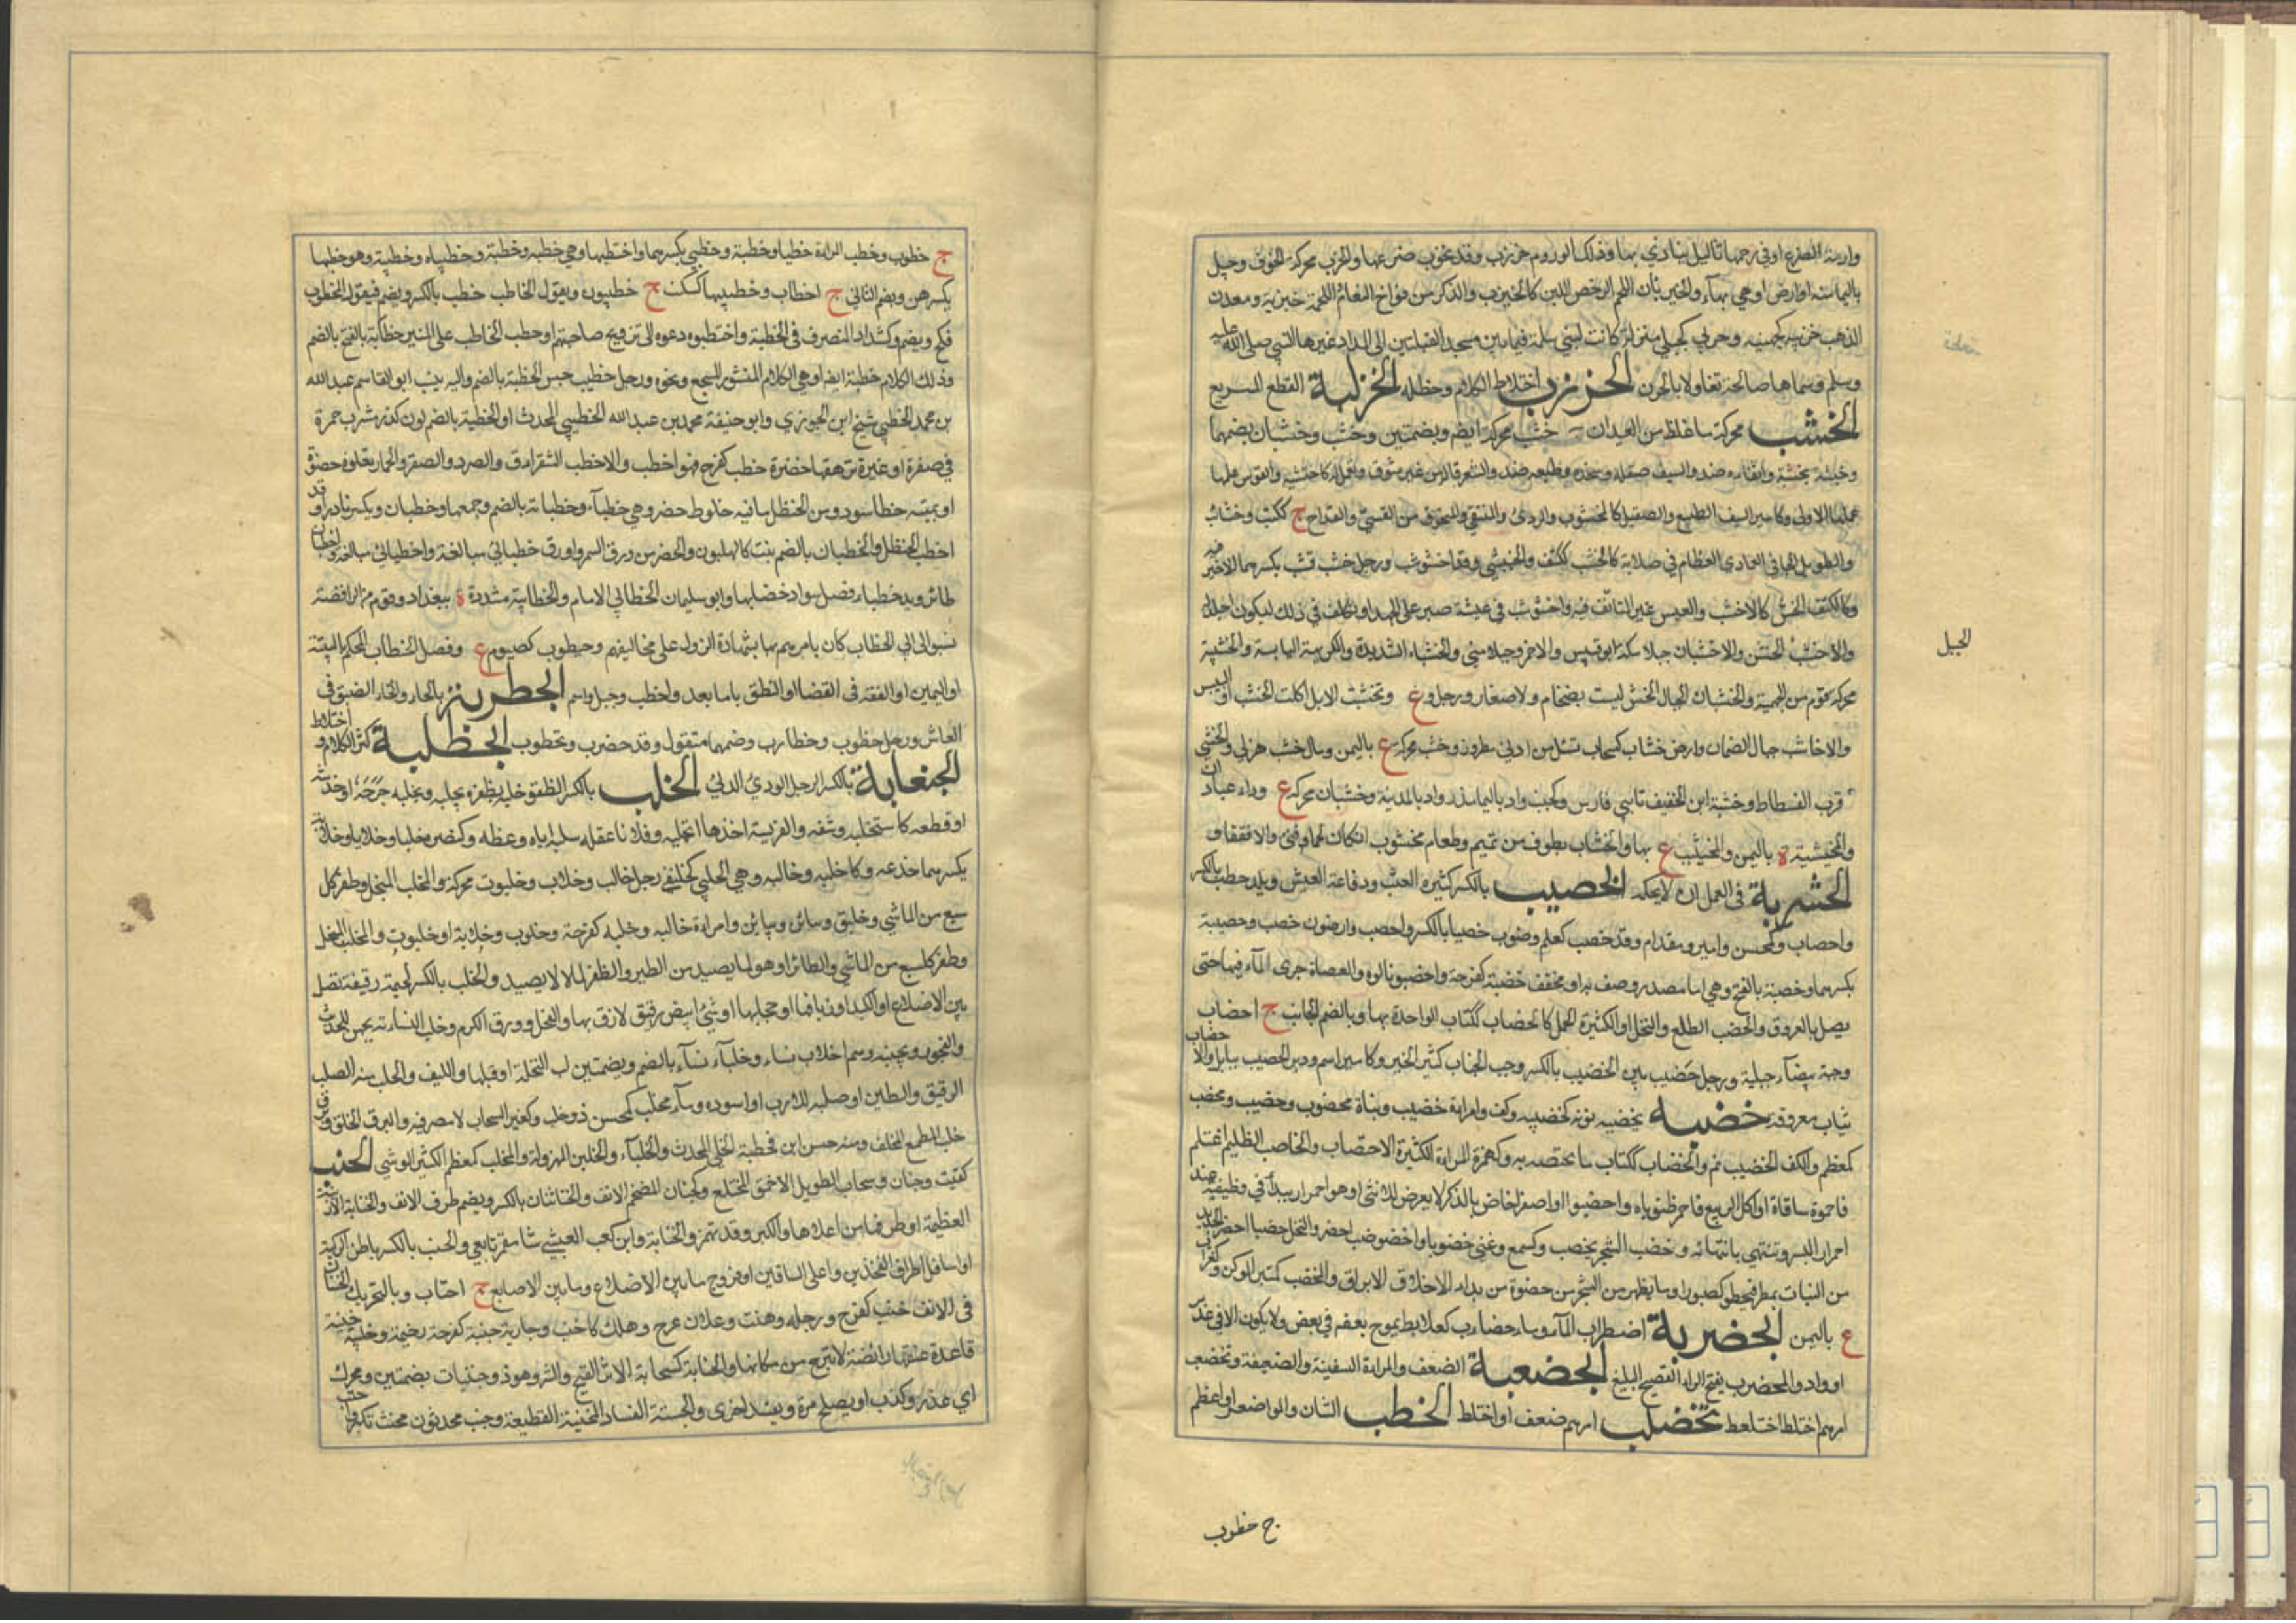 بها وذلك الورم خزرب وقد تخزب ضرعها والخزب محركة الخزف وجبل
باليمامة او ارض او هي بهاء والخيزبان اللحم الرخص اللين كالخيزب والذكر من فراخ النعام اللحمة خيزبة ومعدن
الذهب خزيبة كجهينة وخزبى كحبلى منزلة كانت لبني سلمة فيما بين مسجد القبلتين الى المداد غيرها النبي صلى الله عليه
وسلم وسماها صالحة تفاولا بالخزن الخزرب اختلاط الكلام وخطله الخزلبة القطع السريع
الخشب محركة ما غلظ من العيدان خشب محركة ايضم وبضمتين وخشب وخشبان بضمهما
وخشبه يخشبه وانتقاه ضد والسيف صقله وشحذه وطبعه ضد والشعر قاله من غير تنوق وتعمل له كاختشبه والقوس عملها
عملها الاول وكامير السيف الطبيع والصقيل كالمخشوب والردي والمنتقى والمنحوت من القسي والقداح ج ككتب وخشائب
والطويل الجافي العاري العظام في صلابة كالخشب ككتف والخشيبي وقد اخشوشب ورجل خشب قشب بكسرهما لا خير فيه
وكالكتف الخشن كالاخشب والعيش غير المتانق فيه واخشوشب في عيشه صبر على الجهد او تكلف في ذلك ليكون اجلد له
والاخشب الخشن والاخشبان جبلا مكة ابو قبيس والاحمر وجبلا منى والخشباء الشديدة والكريهة اليابسة والخشبية
الجبل
محركة قوم من الجهمية والخشبان الجبال الخشن ليست بضخام ولا صغار ورجل وع وتخشبت الابل اكلت الخشب او اليبيس
والاخاشب جبال الصمان وارض خشاب كسحاب تسيل من ادنى مطر وذو خشب محركة ع باليمن ومال خشب هزلى والخشبي
قرب الفسطاط وخشبة ابن الخفيف تابعي فارس وكجنب واد باليمامة وواد بالمدينة وخشبان محركة ع
والمخيشبة ة باليمن والمخيشب ع بها والخشاب بطون من تميم وطعام مخشوب ان كان لحما فني والا فقفار
الخشربة في العمل ان لا يحكمه الخصب بالكسر كثرة العشب ورفاغة العيش وبلد خصب بالكسر
واخصاب وكمحسن وامير ومقدام وقد خصب كعلم وضرب خصبا بالكسر واخصب وارضون خصب وخصبة
بكسرهما وخصبة بالفتح وهي اما مصدر وصف به او مخفف خصبة كفرحة واخصبوا نالوه والعضاه جرى الماء فيها حتى
يصل بالعروق والخصب الطلع والنخل او الكثيرة الحمل كالخصاب ككتاب الواحدة بها وبالضم الجانب ج اخصاب
وحية بيضاء جبلية ورجل خصيب بين الخصب بالكسر رحب الجناب كثير الخير وكامير اسم ودير الخصيب ببابل والاخصاب
ثياب معروفة خضبه يخضبه لونه كخضبه وكف وامراة خضيب وبنان مخضوب وخضيب ومخضب
كمعظم والكف الخضيب نجم والخضاب ككتاب ما يختضب به وكهمزة المراة الكثيرة الاختضاب والخاضب الظليم اغتلم
فاحمرت ساقاه او اكل الربيع فاحمر ظنبوباه او اخضرا او اصفرا خاص بالذكر لا يعرض للانثى او هو احمرار يبدا في وظيفيه عند
احمرار البسر وينتهي بانتهائه وخضب الشجر يخضب وكسمع وعني خضوبا واخضوضب اخضر والنخل خضبا اخضر
من النبات يمطر فيخضر كصبور او ما يظهر من الشجر من خضرة من بداء الاخلاق الايراق والمخضب كمنبر المركن وكغراب
ع باليمن الخضربة اضطراب الماء وماء خضارب كعلابط يموج بعضه في بعض ولا يكون الا في غدير
او واد والمخضرب بفتح الراء الفصيح البليغ الخضعبة الضعف والمراة السمينة والضعيفة وتخضعب
امرهم اختلط تخضلب امرهم ضعف او اختلط الخطب الشان والامر صغر او عظم
ج خطوب
ج خطوب وخطب المراة خطبا وخطبة وخطيبى بكسرهما واختطبها وهي خطبه وخطبته وخطيباه وخطيبته وهو خطبها
بكسرهن وبضم الثاني ج اخطاب وخطيبها كسكيت ج خطيبون ويقول الخاطب خطب بالكسر ويضم فيقول المخطوب
نكح ويضم وكشداد المتصرف في الخطبة واختطبوه دعوه الى تزويج صاحبتهم وخطب الخاطب على المنبر خطابة بالفتح خطبة بالضم
وذلك الكلام خطبة ايضا او هي الكلام المنثور المسجع ونحوه ورجل خطيب حسن الخطبة بالضم واليه نسب ابو القاسم عبد الله
بن محمد الخطيبي شيخ ابن الجوزي وابو حنيفة محمد بن عبد الله الخطيبي المحدث او الخطبة بالضم لون كدر مشرب حمرة
في صفرة او غبرة ترهقها خضرة خطب كفرح فهو اخطب والاخطب الشقراق والصرد والصقر والحمار تعلوه خضرة
او بمتنه خط اسود ومن الحنظل ما فيه خطوط خضر وهي خطباء وخطبانة بالضم وجمعها خطبان ويكسر نادرا وقد
اخطب الحنظل والخطبان بالضم نبت كالهليون والخضر من ورق السمر واورق خطباني مبالغة واخطبان
طائر ويد خطباء نصل سواد خضابها وابو سليمان الخطابي الامام والخطابية مشددة ة ببغداد وقوم من الرافضة
نسبوا الى ابي الخطاب كان يامرهم بشهادة الزور على مخالفيهم وخيطوب كقيصوم ع وفصل الخطاب الحكم بالبينة
او اليمين او الفقه في القضا او النطق باما بعد واخطب جبل واسم الخطربة بالحاء والخاء الضيق في
المعاش ورجل خطرب وخطارب وضمهما متقول وقد خطرب وتخطرب الخطلبة كثرة الكلام واختلاطه
الخنعابة بالكسر الرجل الردي الدني الخلب بالكسر الظفر خلبه بظفره يخلبه ويخلبه جرحه او خدشه
او قطعه كاستخلبه وشقه والفريسة اخذها بمخلبه وفلانا عقله سلبه اياه وعضه وكنصر خلبا وخلابا وخلابة
بكسرهما خدعه كاختلبه وخالبه وهي الخليبى كخليفى رجل خالب وخلاب وخلبوت محركة والمخلب المنجل وظفر كل
سبع من الماشي وخلبة وامراة خالبة وخلبة كفرحة وخلوب وخلابة او خلبوت والمخلب المنجل
وظفر كل سبع من الماشي والطائر او هو لما يصيد من الطير والظفر لما لا يصيد والخلب بالكسر لحيمة رقيقة تصل
بين الاضلاع او الكبد او زيادتها او حجابها او شيء ابيض رقيق لازق بها والفجل وورق الكرم وخلب النساء من يحبهن للحديث
والفجور ويحببنه وهم اخلاب نساء وخلباء نساء بالضم وبضمتين لب النخلة او قلبها والليف والحبل منه الصلب
الرقيق والطين او صلبه اللازب او اسوده وماء مخلب كمحسن ذو خلب وكقبر السحاب لا مطر فيه والبرق الخلب وبرق
خلب المطمع المخلف ومنه حسن ابن قحطبة الخلبي المحدث والخلباء والخلبن المهزولة والمخلب كمعظم الكثير الوشي الخنب
كقنب وجنان وسحاب الطويل الاحمق المختلج وكجنان الضخم الانف والخنابتان بالكسر ويضم طرف الانف والخنابة الارنبة
العظيمة او طرفها من اعلاها والكبر وقد تهمز والخنابة وابن كعب العبشمي شاعر تابعي والخنب بالكسر باطن الركبة
او اسافل اطراف الفخذين واعلى الساقين او فروج ما بين الاضلاع وما بين الاصابع ج اخناب وبالتحريك الخنان
في الانف خنب كفرح ورجله وهنت وفلان عرج وهلك كاخنب وجارية خنبة كفرحة رخيمة وظبية خنبة
قاعدة عنقها رابضة لا تبرح من مكانها والخنابة كسحابة الاثر القبيح والشر وهو ذو خنبات بضمتين ويحرك
اي غدر وكذب او يصلح مرة ويفسد اخرى والخنبة الفساد القطيعة وخنب محدثون مخنث تكبر